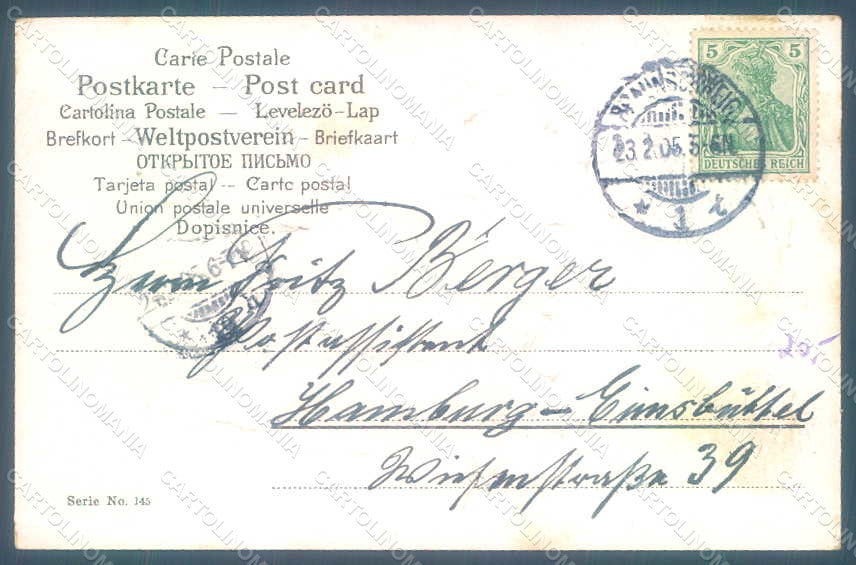 Carte Postale
Postkarte – Post card
Cartolina Postale — Levelező-Lap
Brefkort – Weltpostverein – Briefkaart
ОТКРЫТОЕ ПИСЬМО
Tarjeta postal – Carte postal
Union postale universelle
Dopisnice.
5 5
DEUTSCHES REICH
BRAUNSCHWEIG
23.2.05. 5-6N
* 1 t
Herrn Fritz Berger
Postassistent
Hamburg-Eimsbüttel
Wiesenstraße 39
Serie No. 145
CARTOLINOMANIA